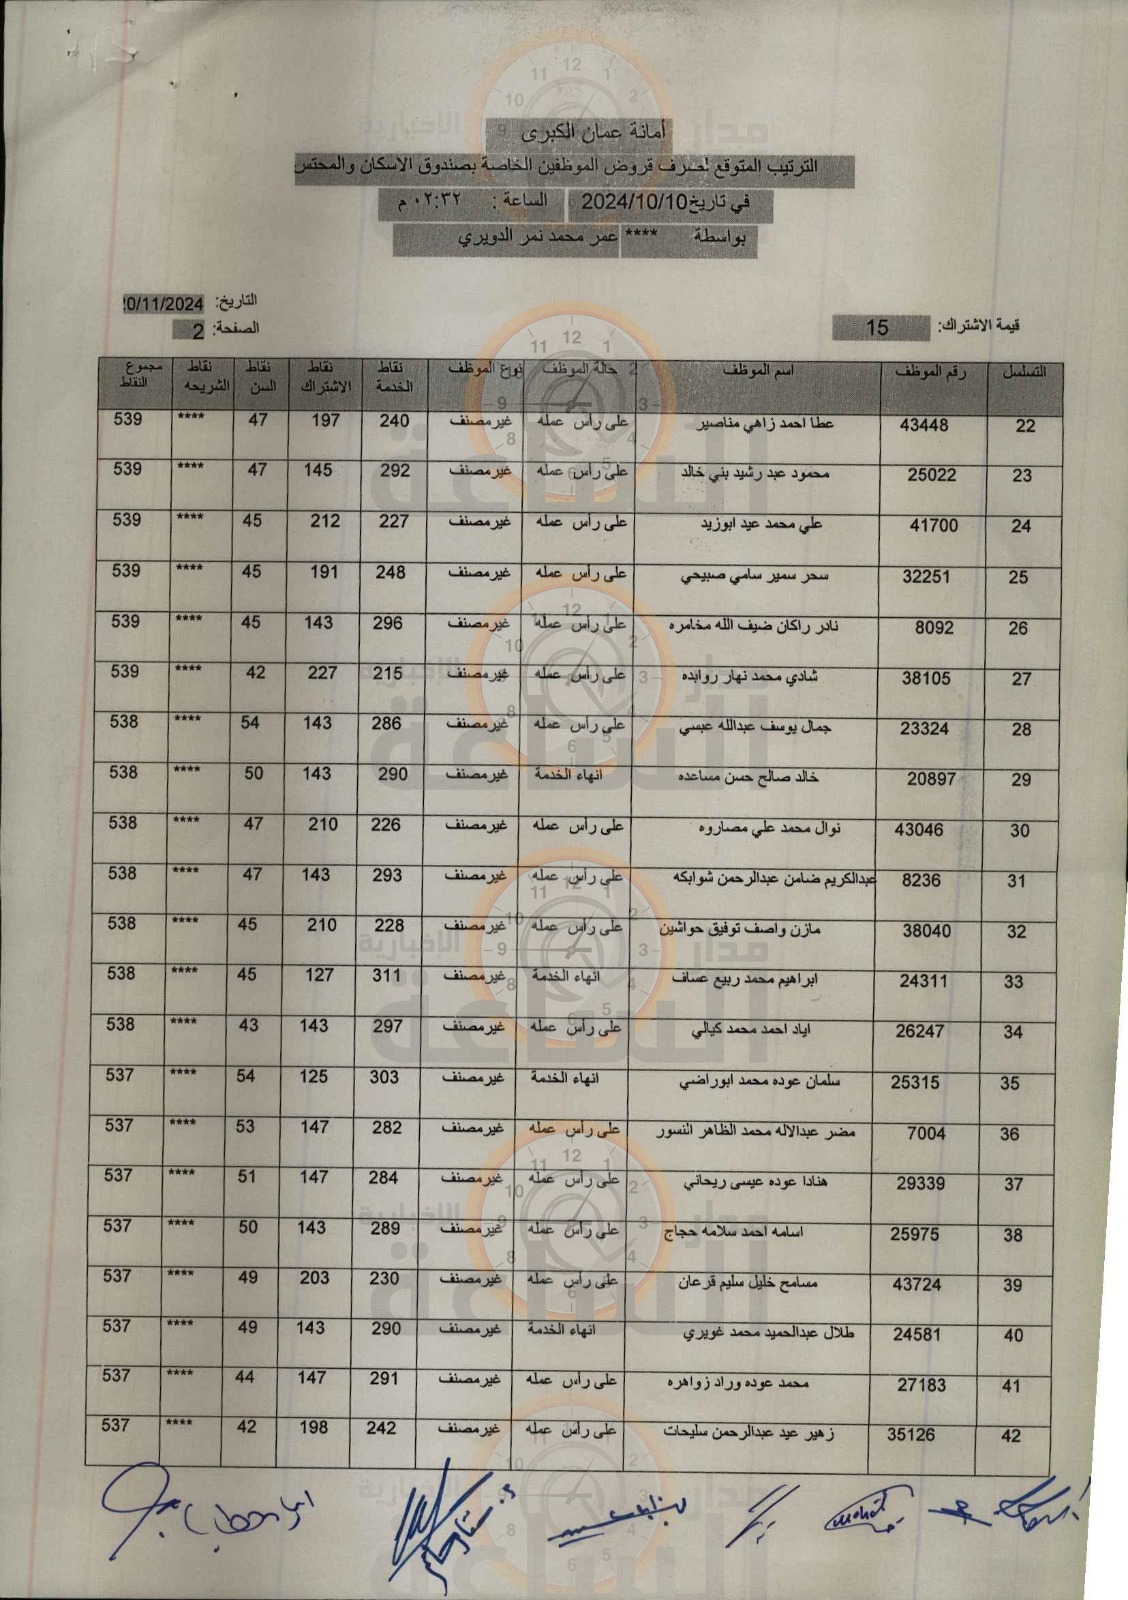 أمانة عمان الكبرى
الترتيب المتوقع لصرف قروض الموظفين الخاصة بصندوق الاسكان والمحتس
في تاريخ 2024/10/10 الساعة : ٠٢:٣٢ م
بواسطة **** عمر محمد نمر الدويري
التاريخ: 20/11/2024
قيمة الاشتراك: 15 الصفحة: 2
التسلسل رقم الموظف اسم الموظف حالة الموظف نوع الموظف نقاط الخدمة نقاط الاشتراك نقاط السن نقاط الشريحه مجموع النقاط
22 43448 عطا احمد زاهي مناصير على رأس عمله غير مصنف 240 197 47 **** 539
23 25022 محمود عبد رشيد بني خالد على رأس عمله غير مصنف 292 145 47 **** 539
24 41700 علي محمد عيد ابوزيد على رأس عمله غير مصنف 227 212 45 **** 539
25 32251 سحر سمير سامي صبيحي على رأس عمله غير مصنف 248 191 45 **** 539
26 8092 نادر راكان ضيف الله مخامره على رأس عمله غير مصنف 296 143 45 **** 539
27 38105 شادي محمد نهار روابده على رأس عمله غير مصنف 215 227 42 **** 539
28 23324 جمال يوسف عبدالله عبسي على رأس عمله غير مصنف 286 143 54 **** 538
29 20897 خالد صالح حسن مساعده انهاء الخدمة غير مصنف 290 143 50 **** 538
30 43046 نوال محمد علي مصاروه على رأس عمله غير مصنف 226 210 47 **** 538
31 8236 عبدالكريم ضامن عبدالرحمن شوابكه على رأس عمله غير مصنف 293 143 47 **** 538
32 38040 مازن واصف توفيق حواشين على رأس عمله غير مصنف 228 210 45 **** 538
33 24311 ابراهيم محمد ربيع عساف انهاء الخدمة غير مصنف 311 127 45 **** 538
34 26247 اياد احمد محمد كيالي على رأس عمله غير مصنف 297 143 43 **** 538
35 25315 سلمان عوده محمد ابوراضي انهاء الخدمة غير مصنف 303 125 54 **** 537
36 7004 مضر عبدالاله محمد الظاهر النسور على رأس عمله غير مصنف 282 147 53 **** 537
37 29339 هنادا عوده عيسى ريحاني على رأس عمله غير مصنف 284 147 51 **** 537
38 25975 اسامه احمد سلامه حجاج على رأس عمله غير مصنف 289 143 50 **** 537
39 43724 مسامح خليل سليم قرعان على رأس عمله غير مصنف 230 203 49 **** 537
40 24581 طلال عبدالحميد محمد غويري انهاء الخدمة غير مصنف 290 143 49 **** 537
41 27183 محمد عوده وراد زواهره على رأس عمله غير مصنف 291 147 44 **** 537
42 35126 زهير عيد عبدالرحمن سليحات على رأس عمله غير مصنف 242 198 42 **** 537